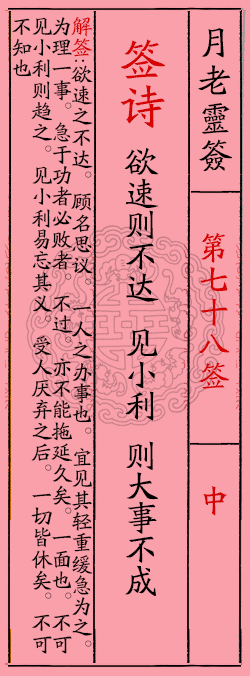 月老靈簽
第七十八签
中
签诗 欲速则不达 见小利 则大事不成
解签:欲速之不达。顾名思议。一人之办事也。宜见其轻重缓急为之。
为理一事。急于功者必败者。不过。亦不能拖延久矣。一面也。不可
见小利则趋之。见小利易忘其义。受人厌弃之后。一切皆休矣。不可
不知也